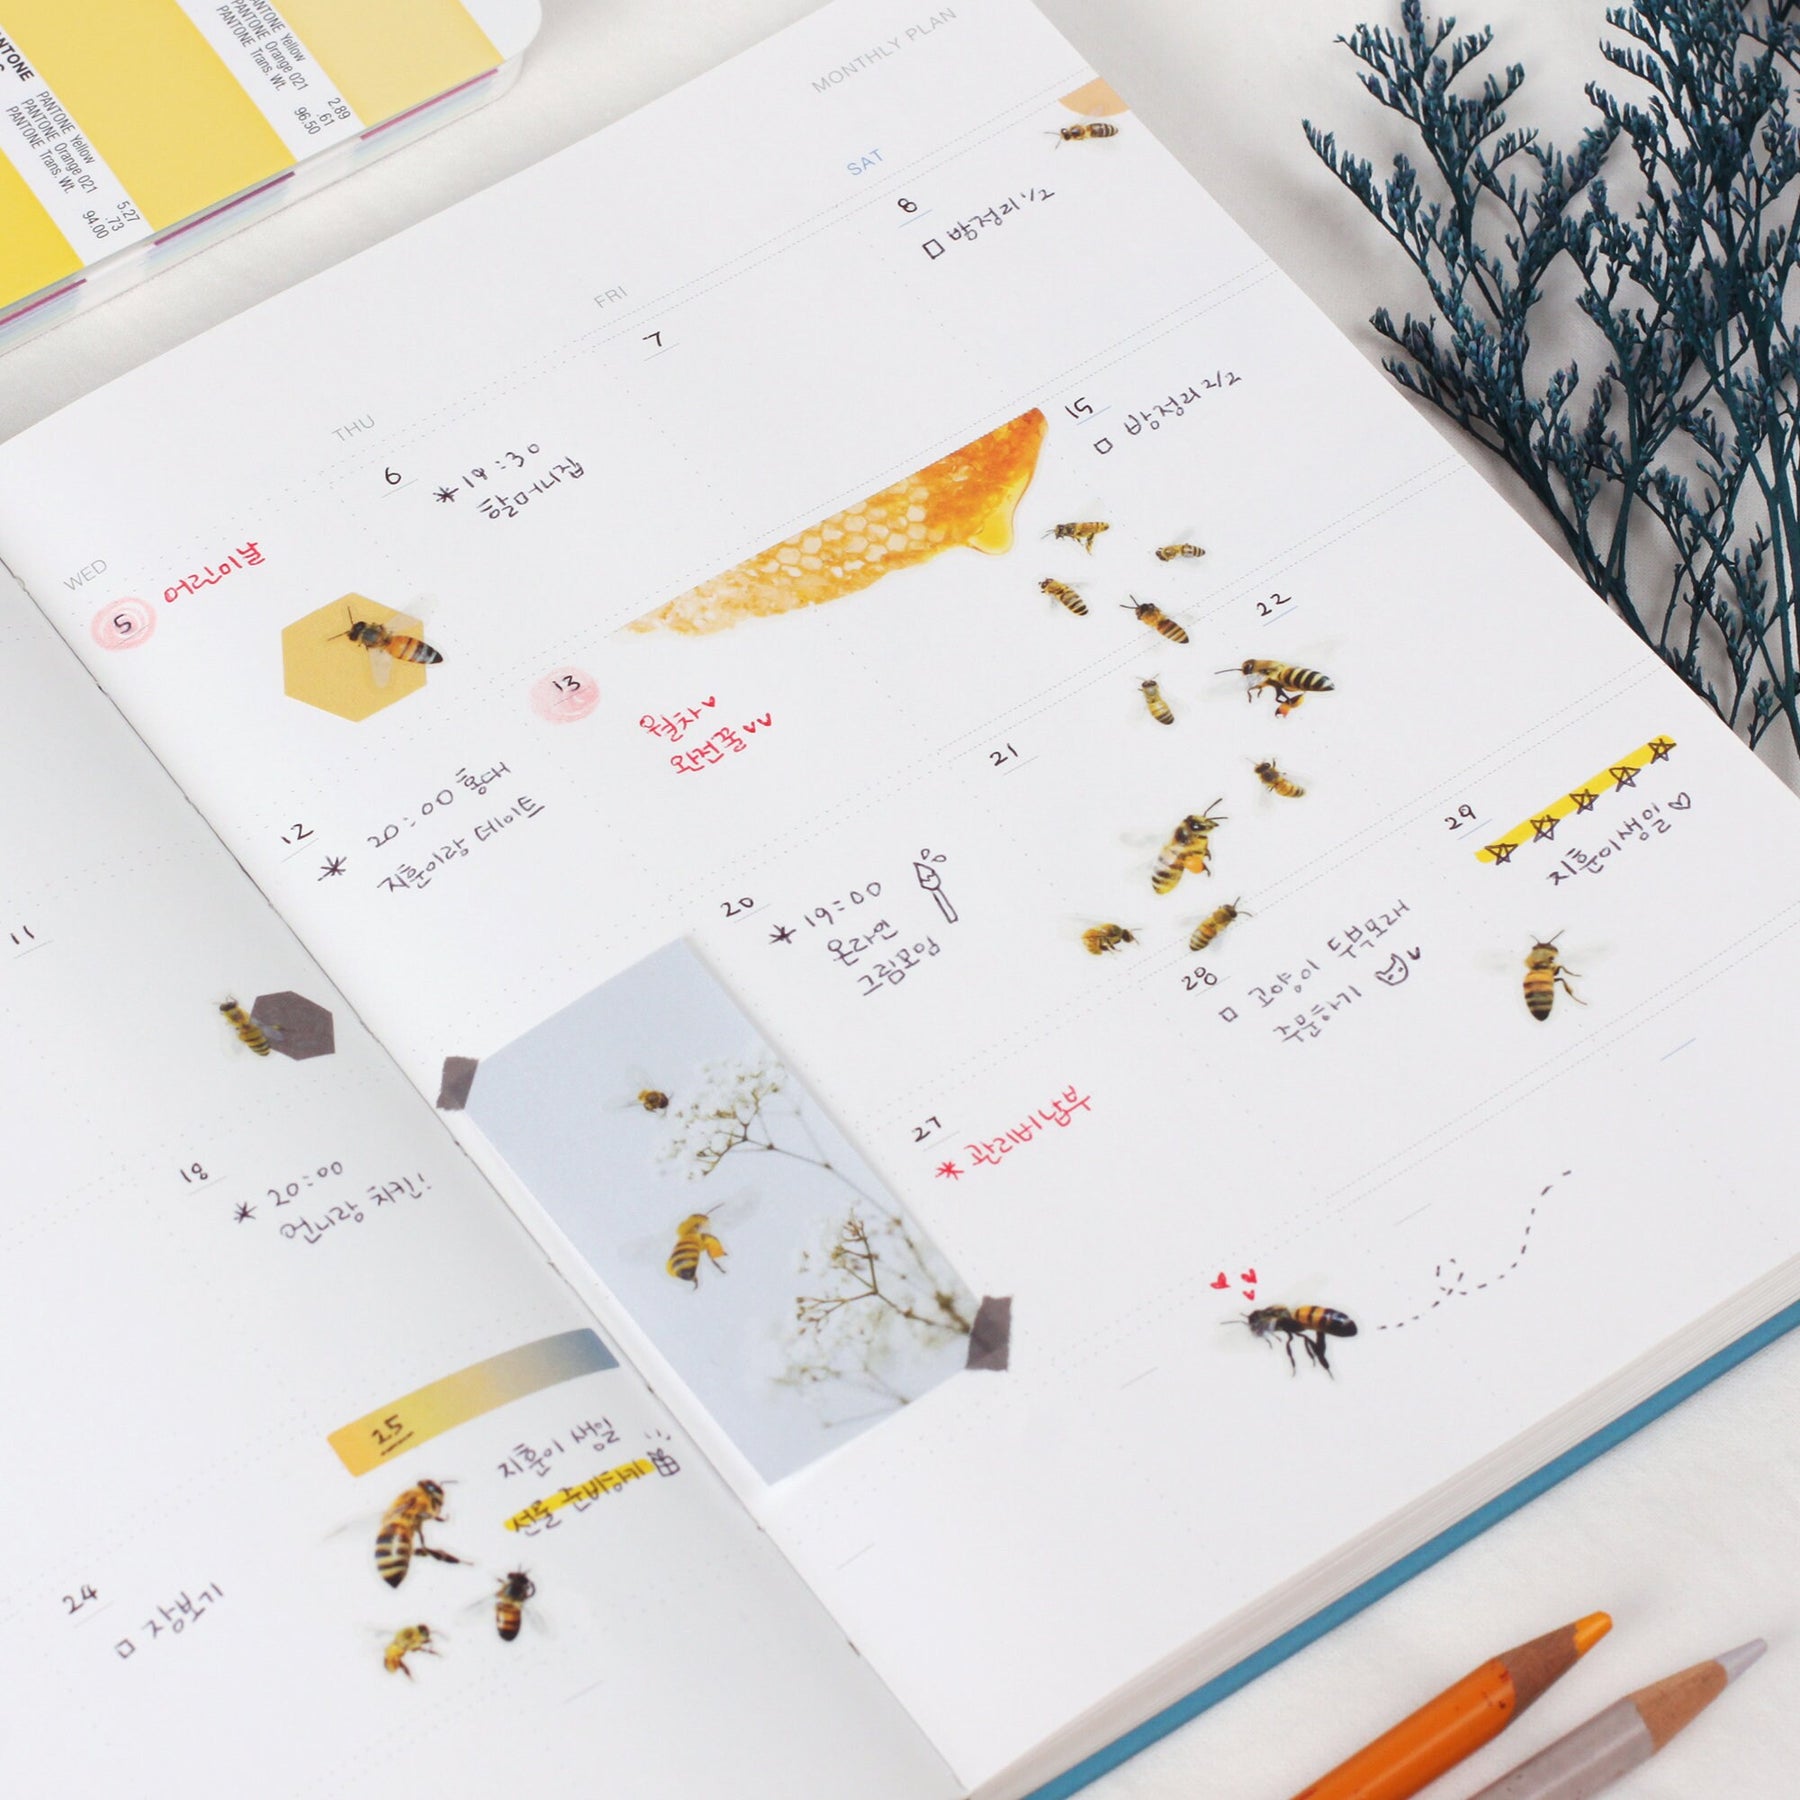 PANTONE
PANTONE Yellow 5.27
PANTONE Orange 021 .73
PANTONE Trans. Wt. 94.00
PANTONE Yellow 2.89
PANTONE Orange 021 .61
PANTONE Trans. Wt. 96.50
MONTHLY PLAN
WED
THU
FRI
SAT
5 어린이날
6
*19:30
할머니집
7
8
방정리 1/2
11
12
* 20:00 홍대
지훈이랑 데이트
13
월차♥
완전꿀♥♥
15
방정리 2/2
18
* 20:00
언니랑 치킨!
20
* 19:00
온라인
그림모임
21
22
24
장보기
25
지훈이 생일
선물 준비하기
27
* 관리비 납부
28
고양이 두부모래
주문하기
29
☆☆☆☆☆
지훈이 생일♡